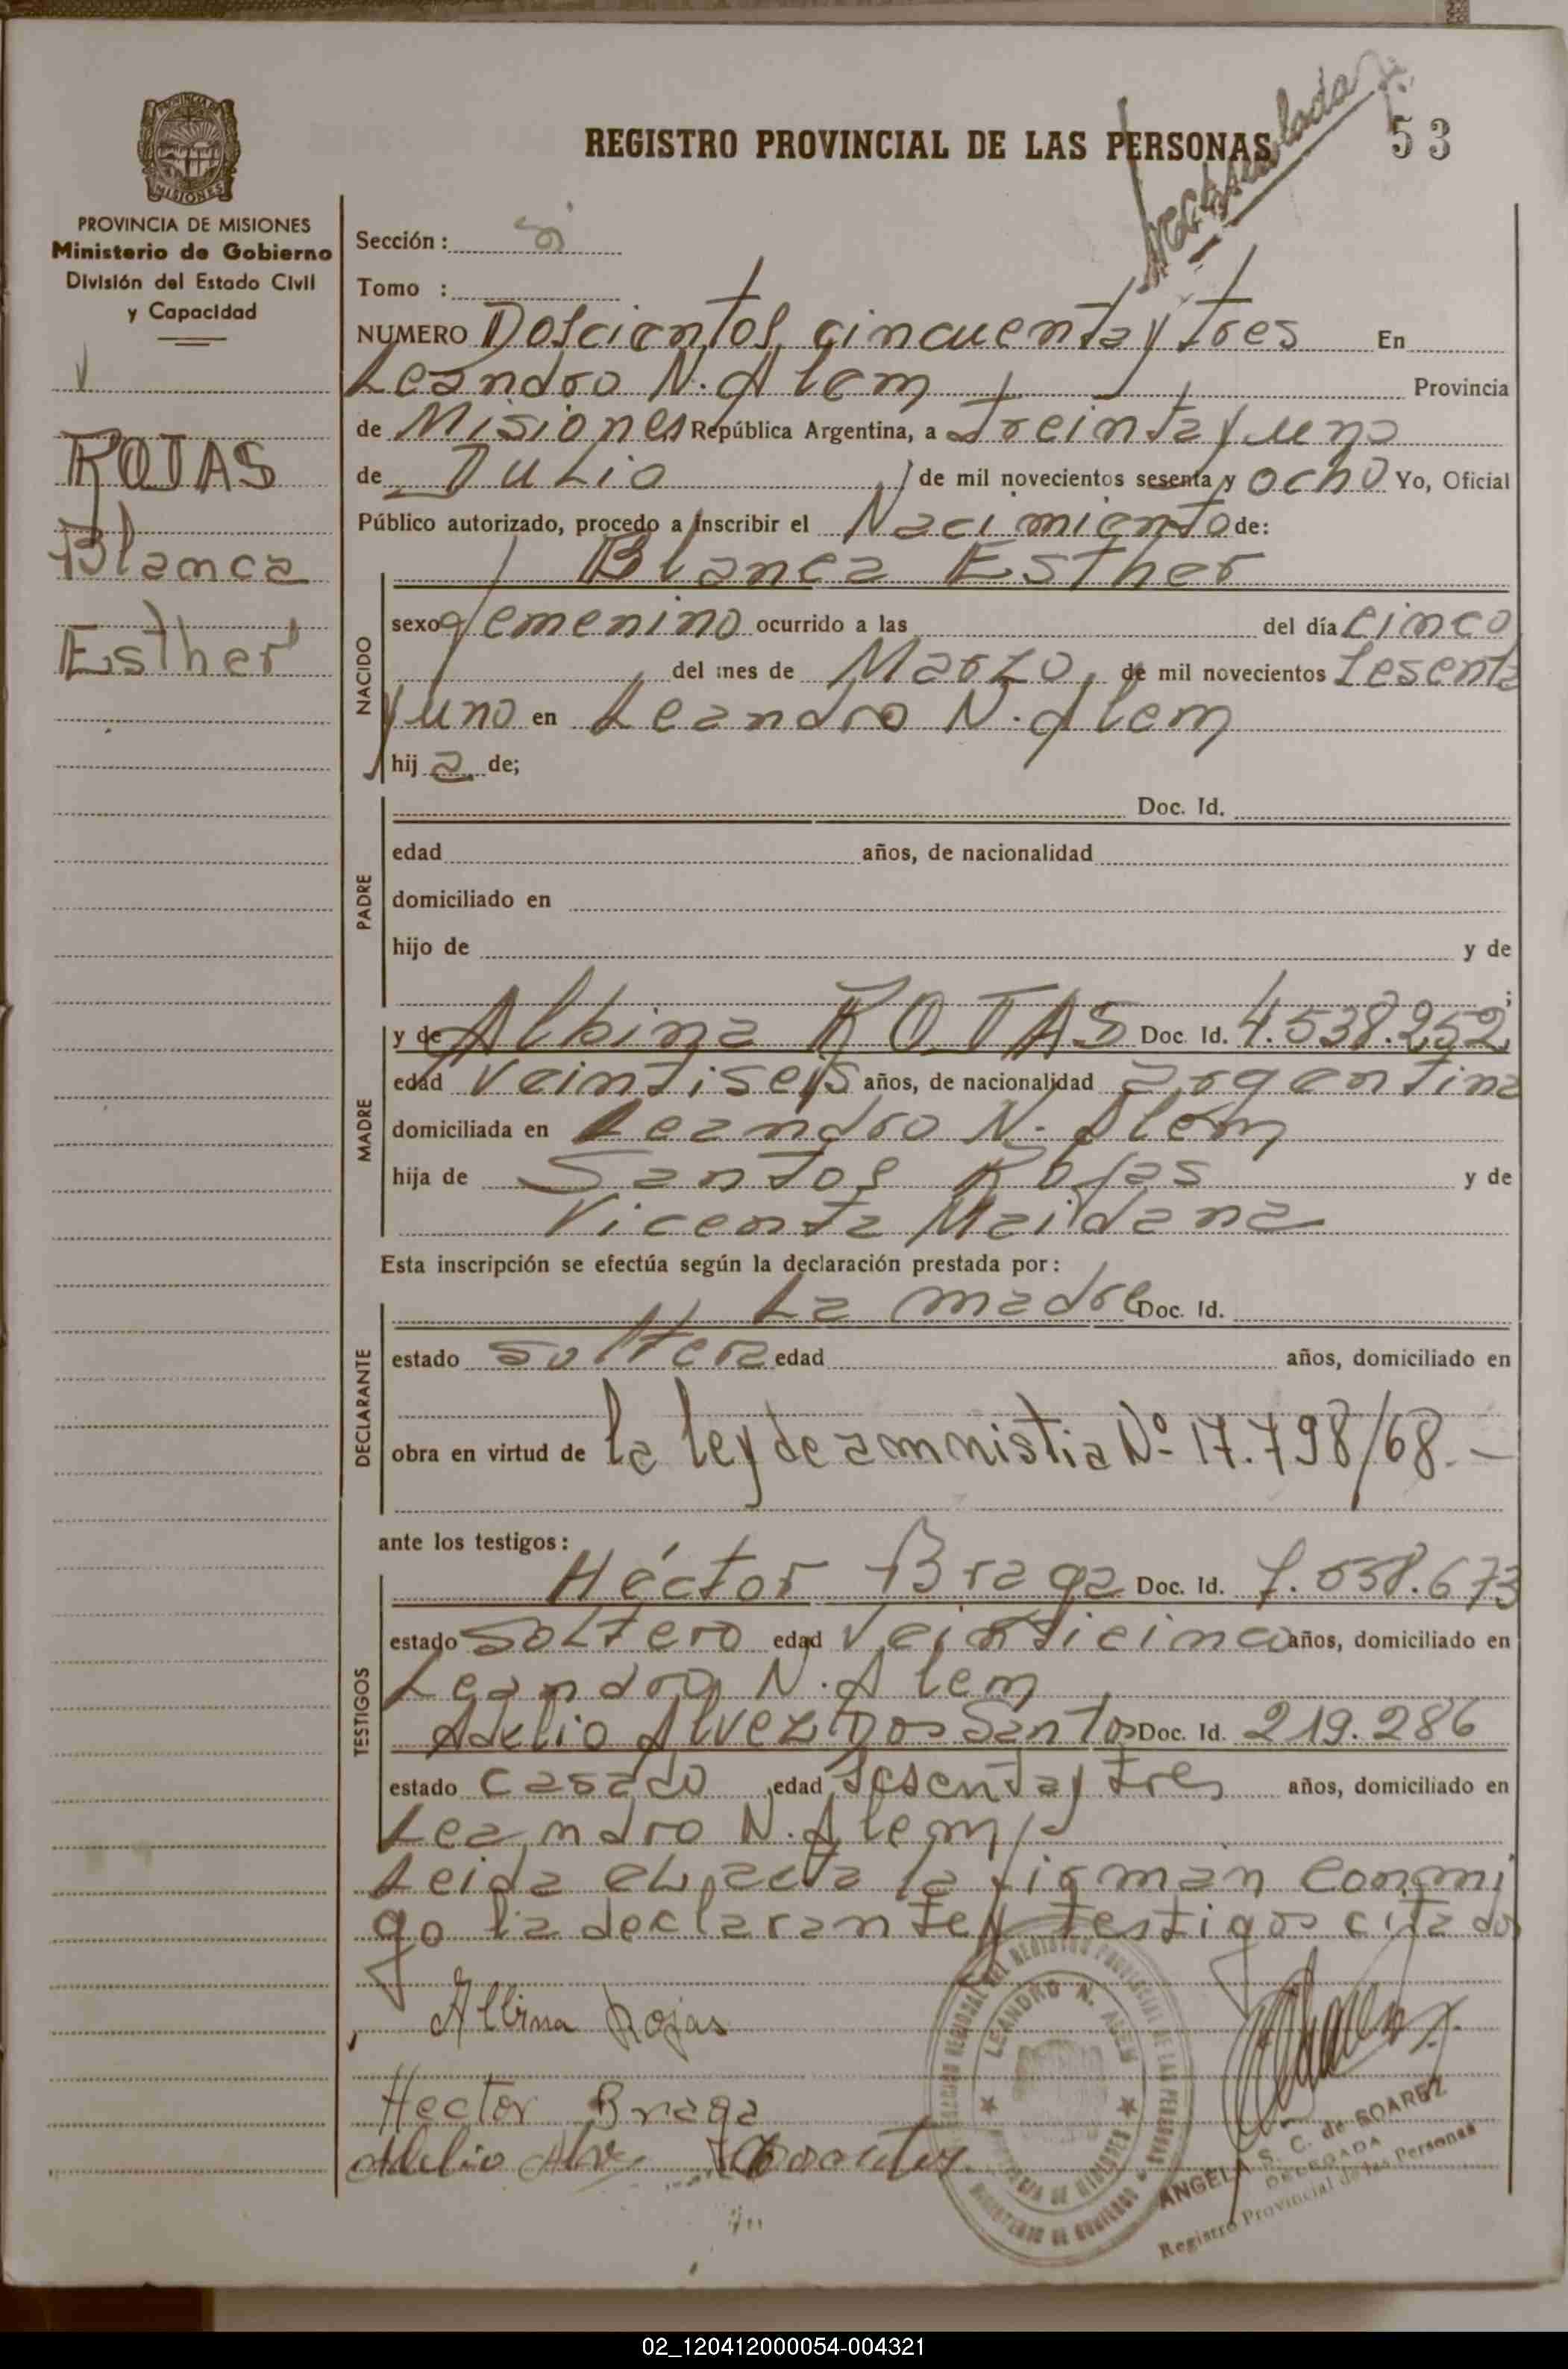 REGISTRO PROVINCIAL DE LAS PERSONAS
53
PROVINCIA DE
MISIONES
PROVINCIA DE MISIONES
Ministerio de Gobierno
División del Estado Civil
y Capacidad
ROJAS
Blanca
Esther
Sección :
Tomo :
NUMERO Doscientos cincuenta y tres En
Leandro N. Alem Provincia
de Misiones República Argentina, a treinta y uno
de Julio de mil novecientos sesenta y ocho Yo, Oficial
Público autorizado, procedo a inscribir el Nacimiento de:
NACIDO
Blanca Esther
sexo femenino ocurrido a las del día cinco
del mes de Marzo, de mil novecientos sesenta
y uno en Leandro N. Alem
hij a de;
PADRE
Doc. Id.
edad años, de nacionalidad
domiciliado en
hijo de y de
;
MADRE
y de Albina ROJAS Doc. Id. 4.538.252
edad veintiseis años, de nacionalidad argentina
domiciliada en Leandro N. Alem
hija de Santos Rojas y de
Vicenta Maidana
Esta inscripción se efectúa según la declaración prestada por:
DECLARANTE
La madre Doc. Id.
estado soltera edad años, domiciliado en
obra en virtud de la ley de amnistia Nº 17.798/68.-
ante los testigos:
TESTIGOS
Héctor Braga Doc. Id. 7.558.673
estado soltero edad veinticinco años, domiciliado en
Leandro N. Alem
Adelio Alvez Dos Santos Doc. Id. 219.286
estado casado edad sesenta y tres años, domiciliado en
Leandro N. Alem
Leida el acta la firman conmi
go la declarante y testigos citados
Albina Rojas
Hector Braga
Adelio Alve
LEANDRO N. ALEM
ANGELA S. C. de SOAREZ
DELEGADA
Registro Provincial de las Personas
02_120412000054-004321